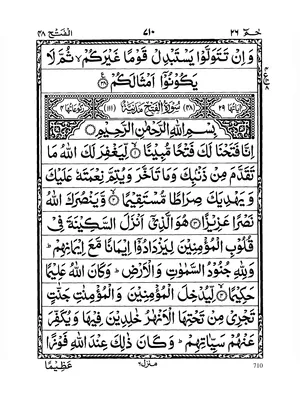 حٰمٓ ٢٦ ٧١٠ الفتح ٤٨
وَاِنْ تَتَوَلَّوْا يَسْتَبْدِلْ قَوْمًا غَيْرَكُمْ ۙ ثُمَّ لَا
يَكُوْنُوْٓا اَمْثَالَكُمْ ۟
اٰيَاتُهَا ٢٩ (٤٨) سُوْرَةُ الْفَتْحِ مَدَنِيَّةٌ (١١١) رُكُوْعَاتُهَا ٤
بِسْمِ اللّٰهِ الرَّحْمٰنِ الرَّحِيْمِ
اِنَّا فَتَحْنَا لَكَ فَتْحًا مُّبِيْنًا ۙ لِّيَغْفِرَ لَكَ اللّٰهُ مَا
تَقَدَّمَ مِنْ ذَنْۢبِكَ وَمَا تَاَخَّرَ وَيُتِمَّ نِعْمَتَهٗ عَلَيْكَ
وَيَهْدِيَكَ صِرَاطًا مُّسْتَقِيْمًا ۙ وَّيَنْصُرَكَ اللّٰهُ
نَصْرًا عَزِيْزًا ۟ هُوَ الَّذِيْٓ اَنْزَلَ السَّكِيْنَةَ فِيْ
قُلُوْبِ الْمُؤْمِنِيْنَ لِيَزْدَادُوْٓا اِيْمَانًا مَّعَ اِيْمَانِهِمْ ؕ
وَلِلّٰهِ جُنُوْدُ السَّمٰوٰتِ وَالْاَرْضِ ؕ وَكَانَ اللّٰهُ عَلِيْمًا
حَكِيْمًا ۙ لِّيُدْخِلَ الْمُؤْمِنِيْنَ وَالْمُؤْمِنٰتِ جَنّٰتٍ
تَجْرِيْ مِنْ تَحْتِهَا الْاَنْهٰرُ خٰلِدِيْنَ فِيْهَا وَيُكَفِّرَ
عَنْهُمْ سَيِّاٰتِهِمْ ؕ وَكَانَ ذٰلِكَ عِنْدَ اللّٰهِ فَوْزًا
عَظِيْمًا منزل ٦ 710